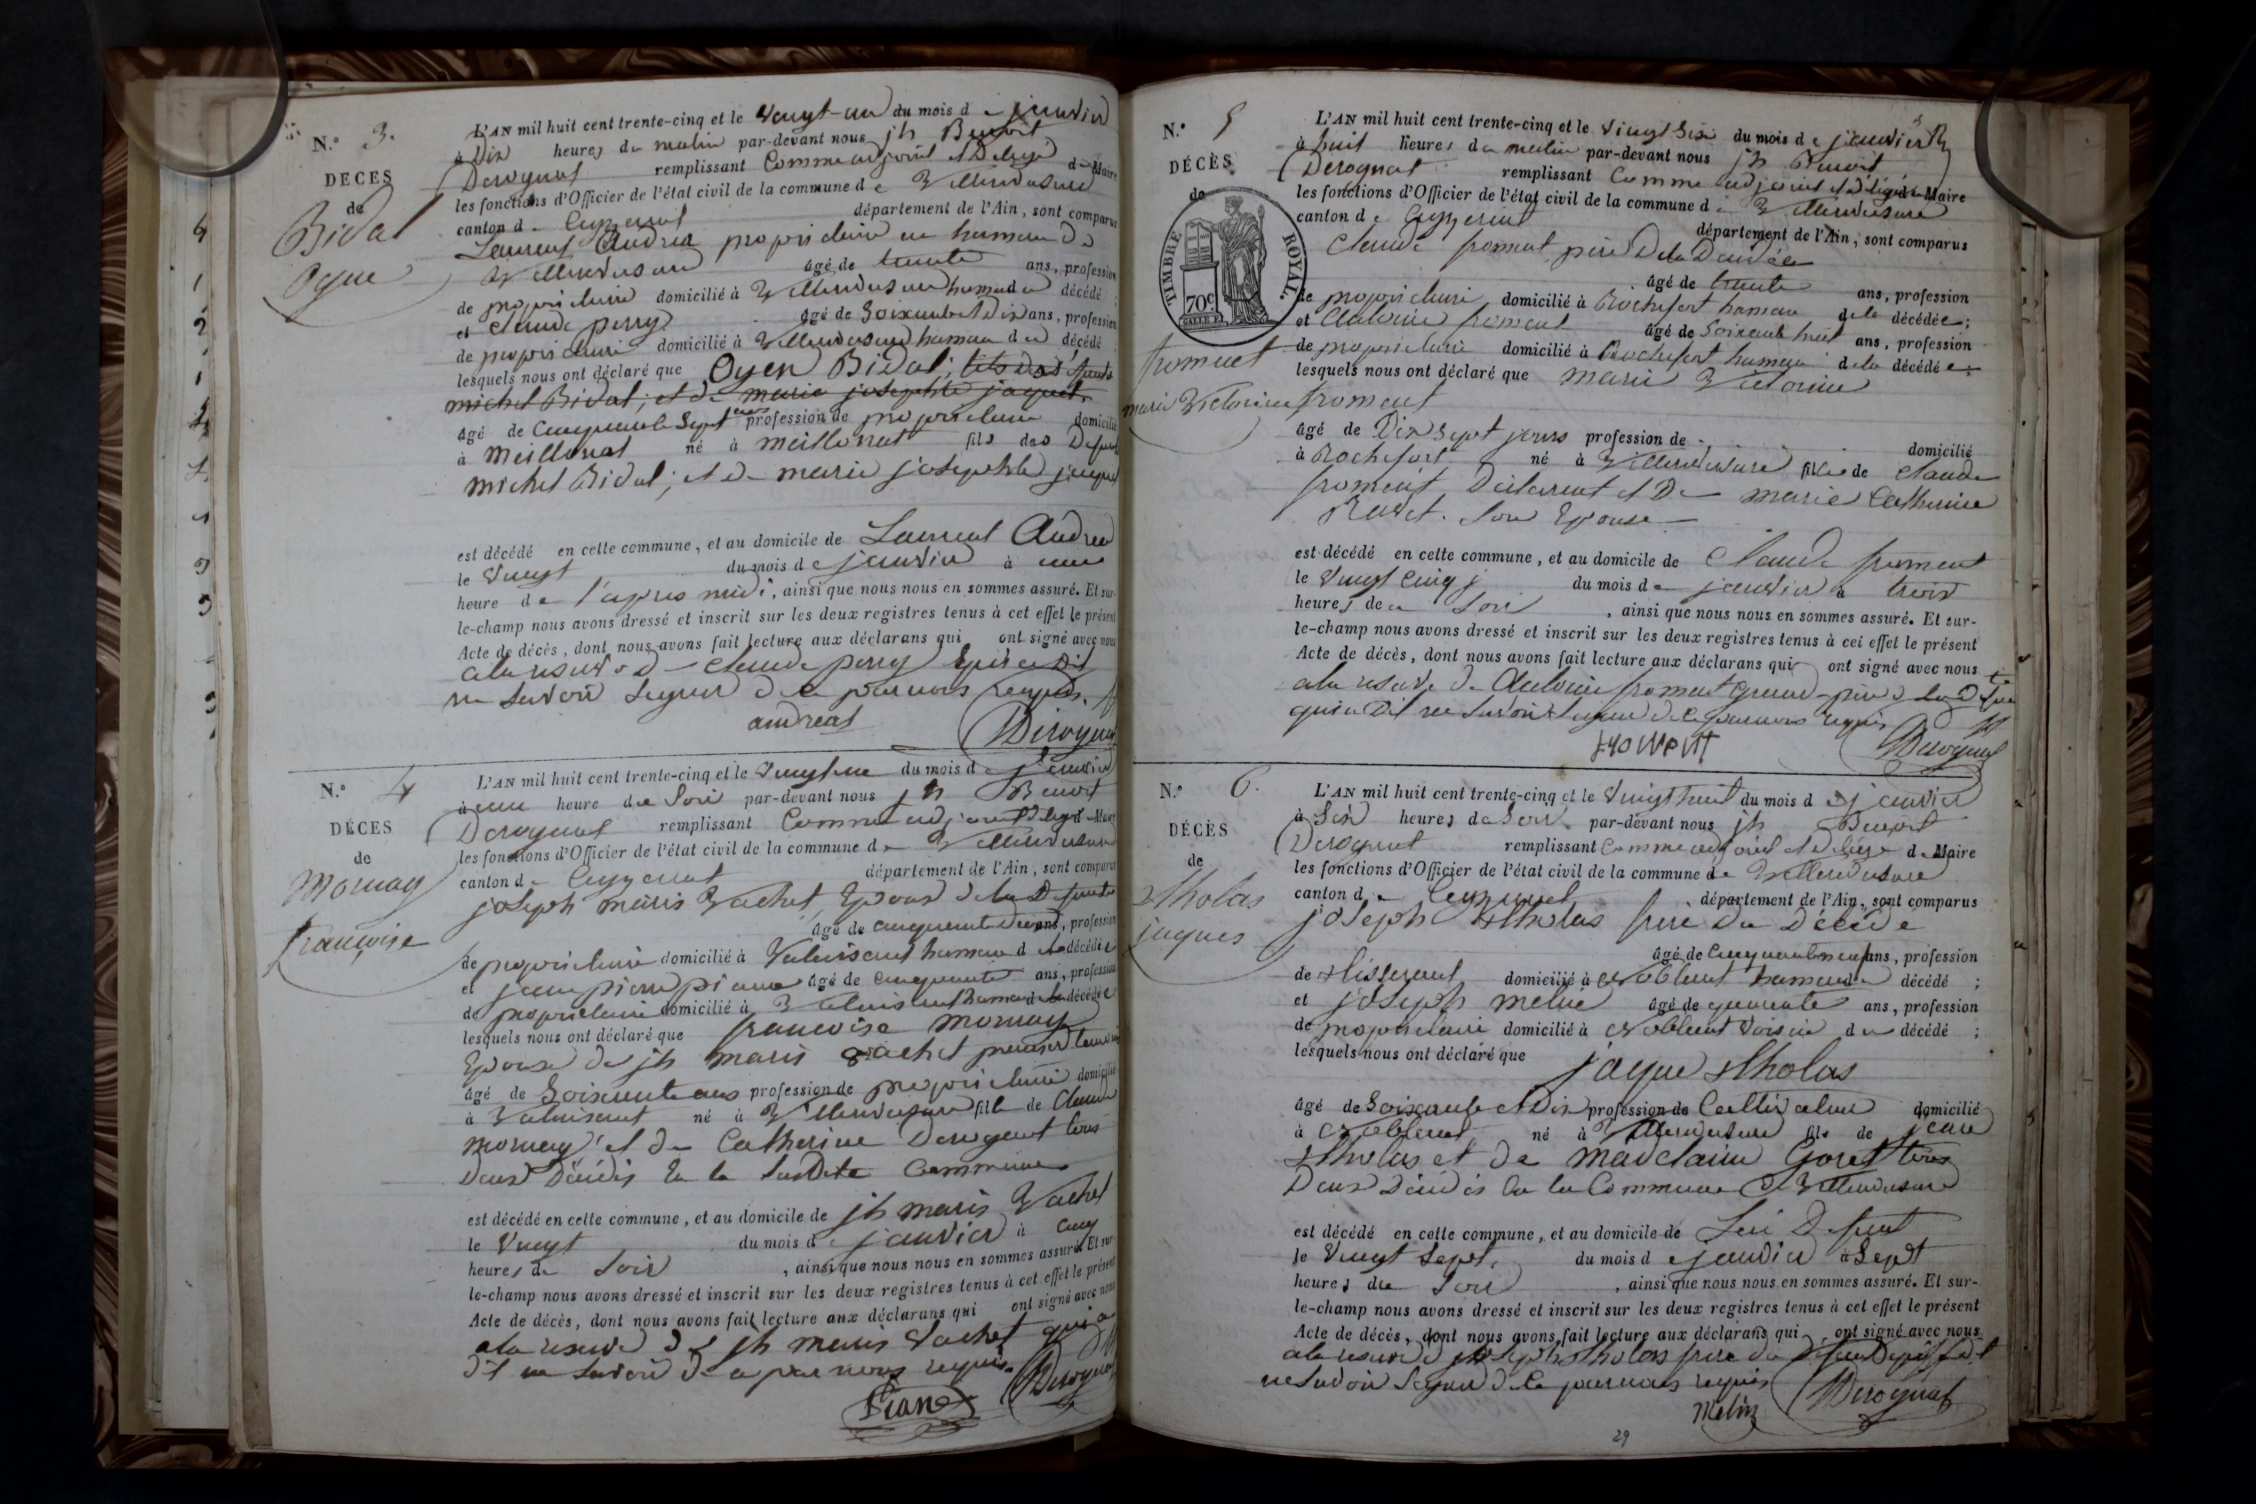 N.º 3.
DÉCÈS
de
Bidal
Oyen
L'AN mil huit cent trente-cinq et le vingt-un du mois de janvier
à Dix heures du matin par-devant nous jh Benoit
Derognat remplissant Comme adjoint et Délégué de Maire
les fonctions d'Officier de l'état civil de la commune de Villereversure
canton de Ceyzeriat département de l'Ain, sont comparus
Laurent Andrea propriétaire au hameau de
Villereversure âgé de trente ans, profession
de propriétaire domicilié à Villereversure hameau du décédé ;
et Claude perry âgé de Soixante et Dix ans, profession
de propriétaire domicilié à Villereversure hameau du décédé ;
lesquels nous ont déclaré que Oyen Bidal, fils des défunts
michel Bidal, et de marie josephte jaquet
âgé de Cinquante Sept ans profession de propriétaire domicilié
à Meillonat né à meillonat fils des Défunts
michel Bidal, et de marie josephte jaquet
est décédé en cette commune, et au domicile de Laurent Andrea
le vingt du mois de janvier à une
heure de l'après midi, ainsi que nous nous en sommes assuré. Et sur-
le-champ nous avons dressé et inscrit sur les deux registres tenus à cet effet le présent
Acte de décès, dont nous avons fait lecture aux déclarans qui ont signé avec nous
a la réserve de Claude perry qui a Dit
ne Savoir Signer de ce par nous requis.
andreas
Derognat
N.º 4
DÉCÈS
de
Mornay
françoise
L'AN mil huit cent trente-cinq et le vingt une du mois de janvier
à une heure du Soir par-devant nous jh Benoit
Derognat remplissant Comme adjoint Délégué Maire
les fonctions d'Officier de l'état civil de la commune de Villereversure
canton de Ceyzeriat département de l'Ain, sont comparus
joseph maris Vachet Epoux de la Defunte
âgé de cinquante Deux ans, profession
de propriétaire domicilié à Valuisant hameau de la décédée
et jean pierre piane âgé de cinquante ans, profession
de propriétaire domicilié à Valuisant hameau de la décédée
lesquels nous ont déclaré que francoise mornay
Epouse de jh maris Vachet premier temoin
âgé de Soixante ans profession de propriétaire domicilié
à Valuisant né à Villereversure fille de Claude
mornay et de Catherine Derognat tous
Deux Décédés En la Susdite Commune
est décédé en cette commune, et au domicile de jh maris Vachet
le vingt du mois de janvier à cinq
heures du Soir, ainsi que nous nous en sommes assuré. Et sur-
le-champ nous avons dressé et inscrit sur les deux registres tenus à cet effet le présent
Acte de décès, dont nous avons fait lecture aux déclarans qui ont signé avec nous
a la reserve de jh maris Vachet qui a
dit ne Savoir de ce par nous requis.
Piane
Derognat
N.º 5
DÉCÈS
de
TIMBRE ROYAL.
70c
froment
marie Victorine
L'AN mil huit cent trente-cinq et le vingt Six du mois de janvier
à huit heures du matin par-devant nous jh Benoit
Derognat remplissant Comme adjoint et délégué de Maire
les fonctions d'Officier de l'état civil de la commune de Villereversure
canton de Ceyzeriat département de l'Ain, sont comparus
Claude froment père De la Décédée
âgé de trente ans, profession
de propriétaire domicilié à Rochefort hameau de la décédée ;
et Antoine froment âgé de Soixante huit ans, profession
de propriétaire domicilié à Rochefort hameau de la décédée ;
lesquels nous ont déclaré que marie Victorine
froment
âgé de Dix Sept jours profession de domicilié
à Rochefort né à Villereversure fille de Claude
froment Déclarent et De marie Catherine
Ravet Son Epouse
est décédé en cette commune, et au domicile de Claude froment
le vingt cinq du mois de janvier à trois
heures de u Soir, ainsi que nous nous en sommes assuré. Et sur-
le-champ nous avons dressé et inscrit sur les deux registres tenus à cet effet le présent
Acte de décès, dont nous avons fait lecture aux déclarans qui ont signé avec nous
a la reserve de Antoine froment grand-père de la Défunte
qui a Dit ne Savoir Signer de ce par nous requis
froment
Derognat
N.º 6.
DÉCÈS
de
jaques
L'AN mil huit cent trente-cinq et le vingt huit du mois de janvier
à Six heures du Soir par-devant nous jh Benoit
Derognat remplissant Comme adjoint et Délégé de Maire
les fonctions d'Officier de l'état civil de la commune de Villereversure
canton de Ceyzeriat département de l'Ain, sont comparus
joseph frère du Décédé
âgé de Cinquante neuf ans, profession
de tisserant domicilié à hameau du décédé ;
et joseph âgé de quarante ans, profession
de propriétaire domicilié à voisin du décédé ;
lesquels nous ont déclaré que jaque
âgé de Soixante et Dix profession de Cultivateur domicilié
à né à Villereversure fils de jean
et de Gouet tous
Deux Décédés En la Commune de Villereversure
est décédé en cette commune, et au domicile de Lui Defunt
le vingt Sept du mois de janvier à Sept
heures du Soir, ainsi que nous nous en sommes assuré. Et sur-
le-champ nous avons dressé et inscrit sur les deux registres tenus à cet effet le présent
Acte de décès, dont nous avons fait lecture aux déclarans qui ont signé avec nous
a la reserve de joseph frère du Défunt
ne Savoir Signer de Ce par nous requis
Derognat
29